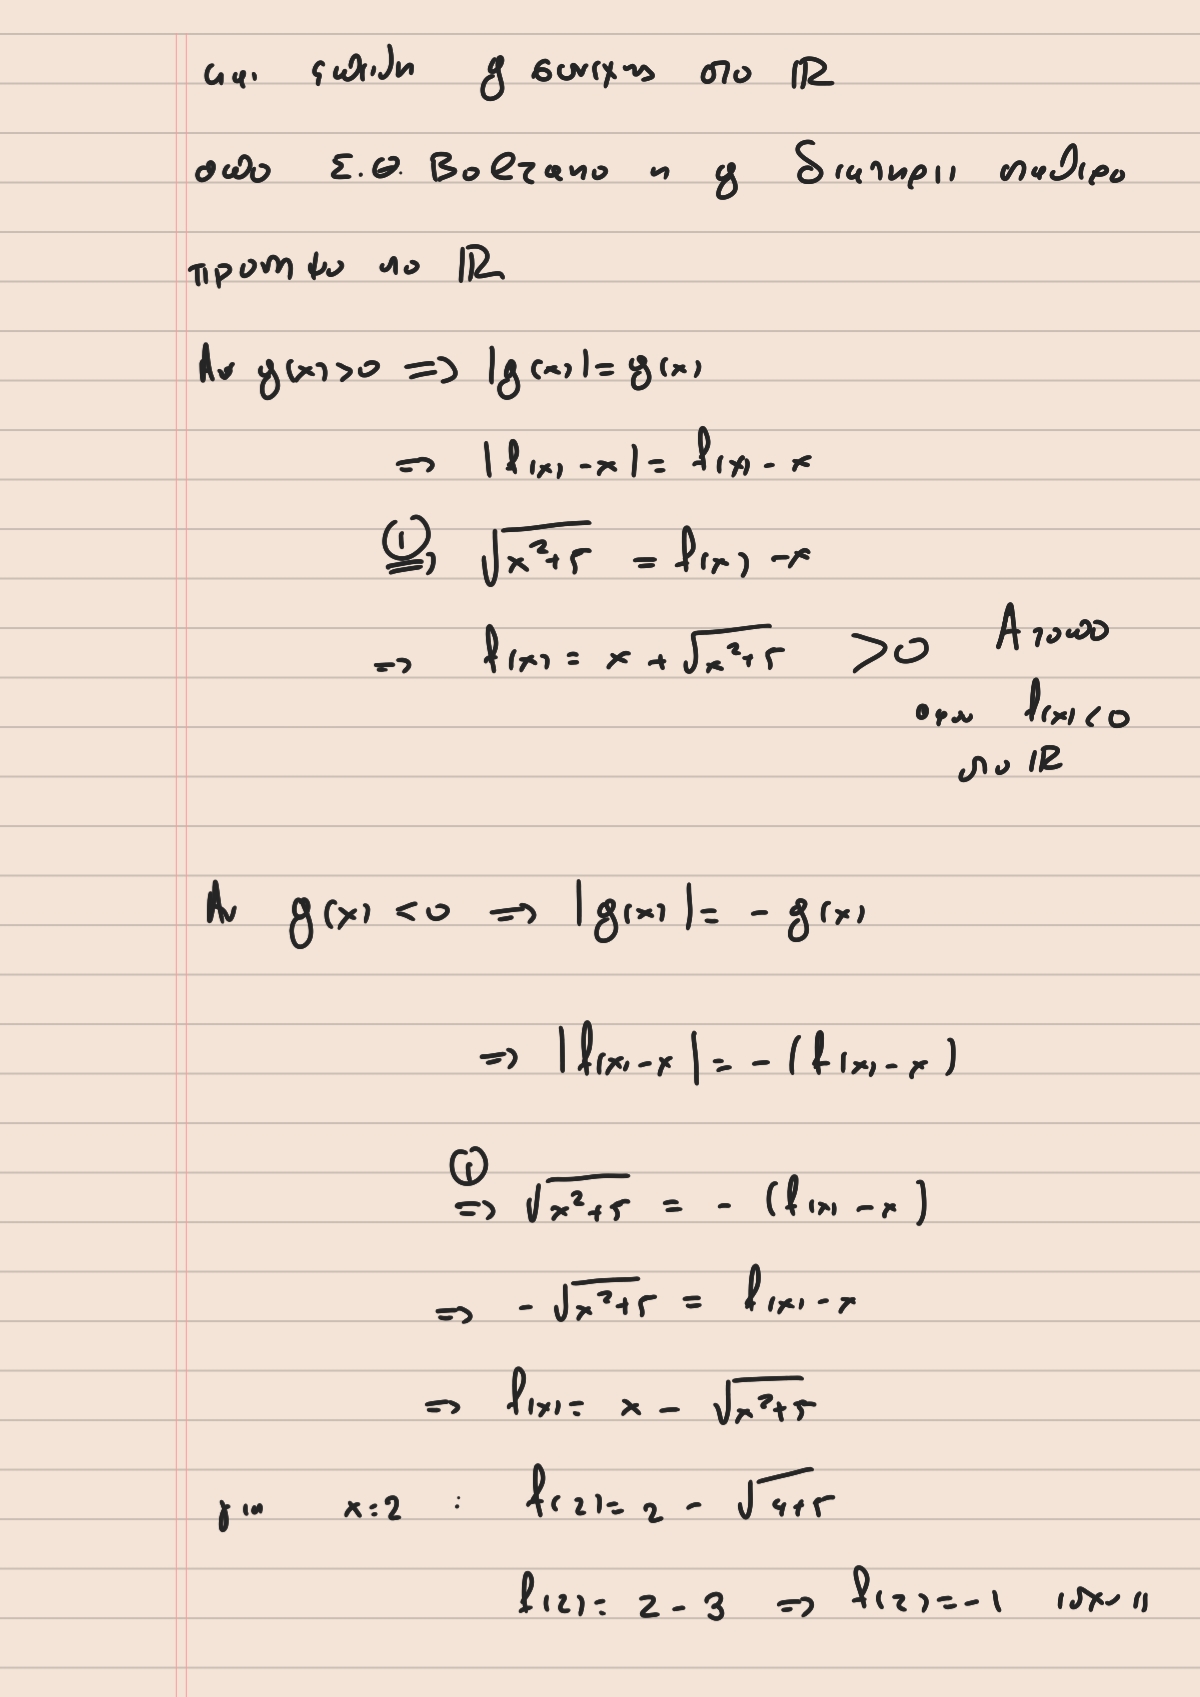 και επειδή g συνεχής στο ℝ
από Σ.Θ. Bolzano η g διατηρεί σταθερό
πρόσημο στο ℝ
Αν g(x)>0 => |g(x)|= g(x)
=> |f(x)-x|= f(x)-x
① => √(x²+5) = f(x)-x
=> f(x)= x+√(x²+5) >0 Άτοπο
αφού f(x)<0
στο ℝ
Αν g(x)<0 => |g(x)|= -g(x)
=> |f(x)-x|= -(f(x)-x)
① => √(x²+5) = -(f(x)-x)
=> -√(x²+5) = f(x)-x
=> f(x)= x-√(x²+5)
για x=2 : f(2)= 2-√(4+5)
f(2)= 2-3 => f(2)=-1 ισχύει